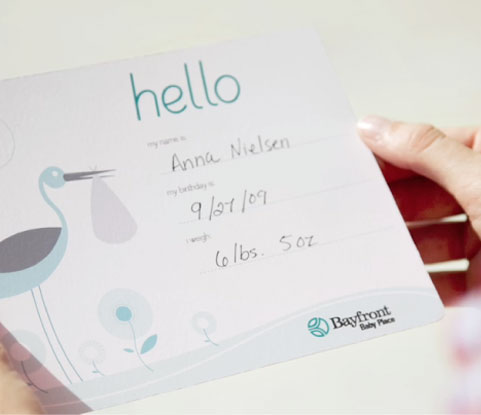 hello
my name is
Anna Nielsen
my birthday is
9/27/09
i weigh
6 lbs. 5 oz
Bayfront
Baby Place